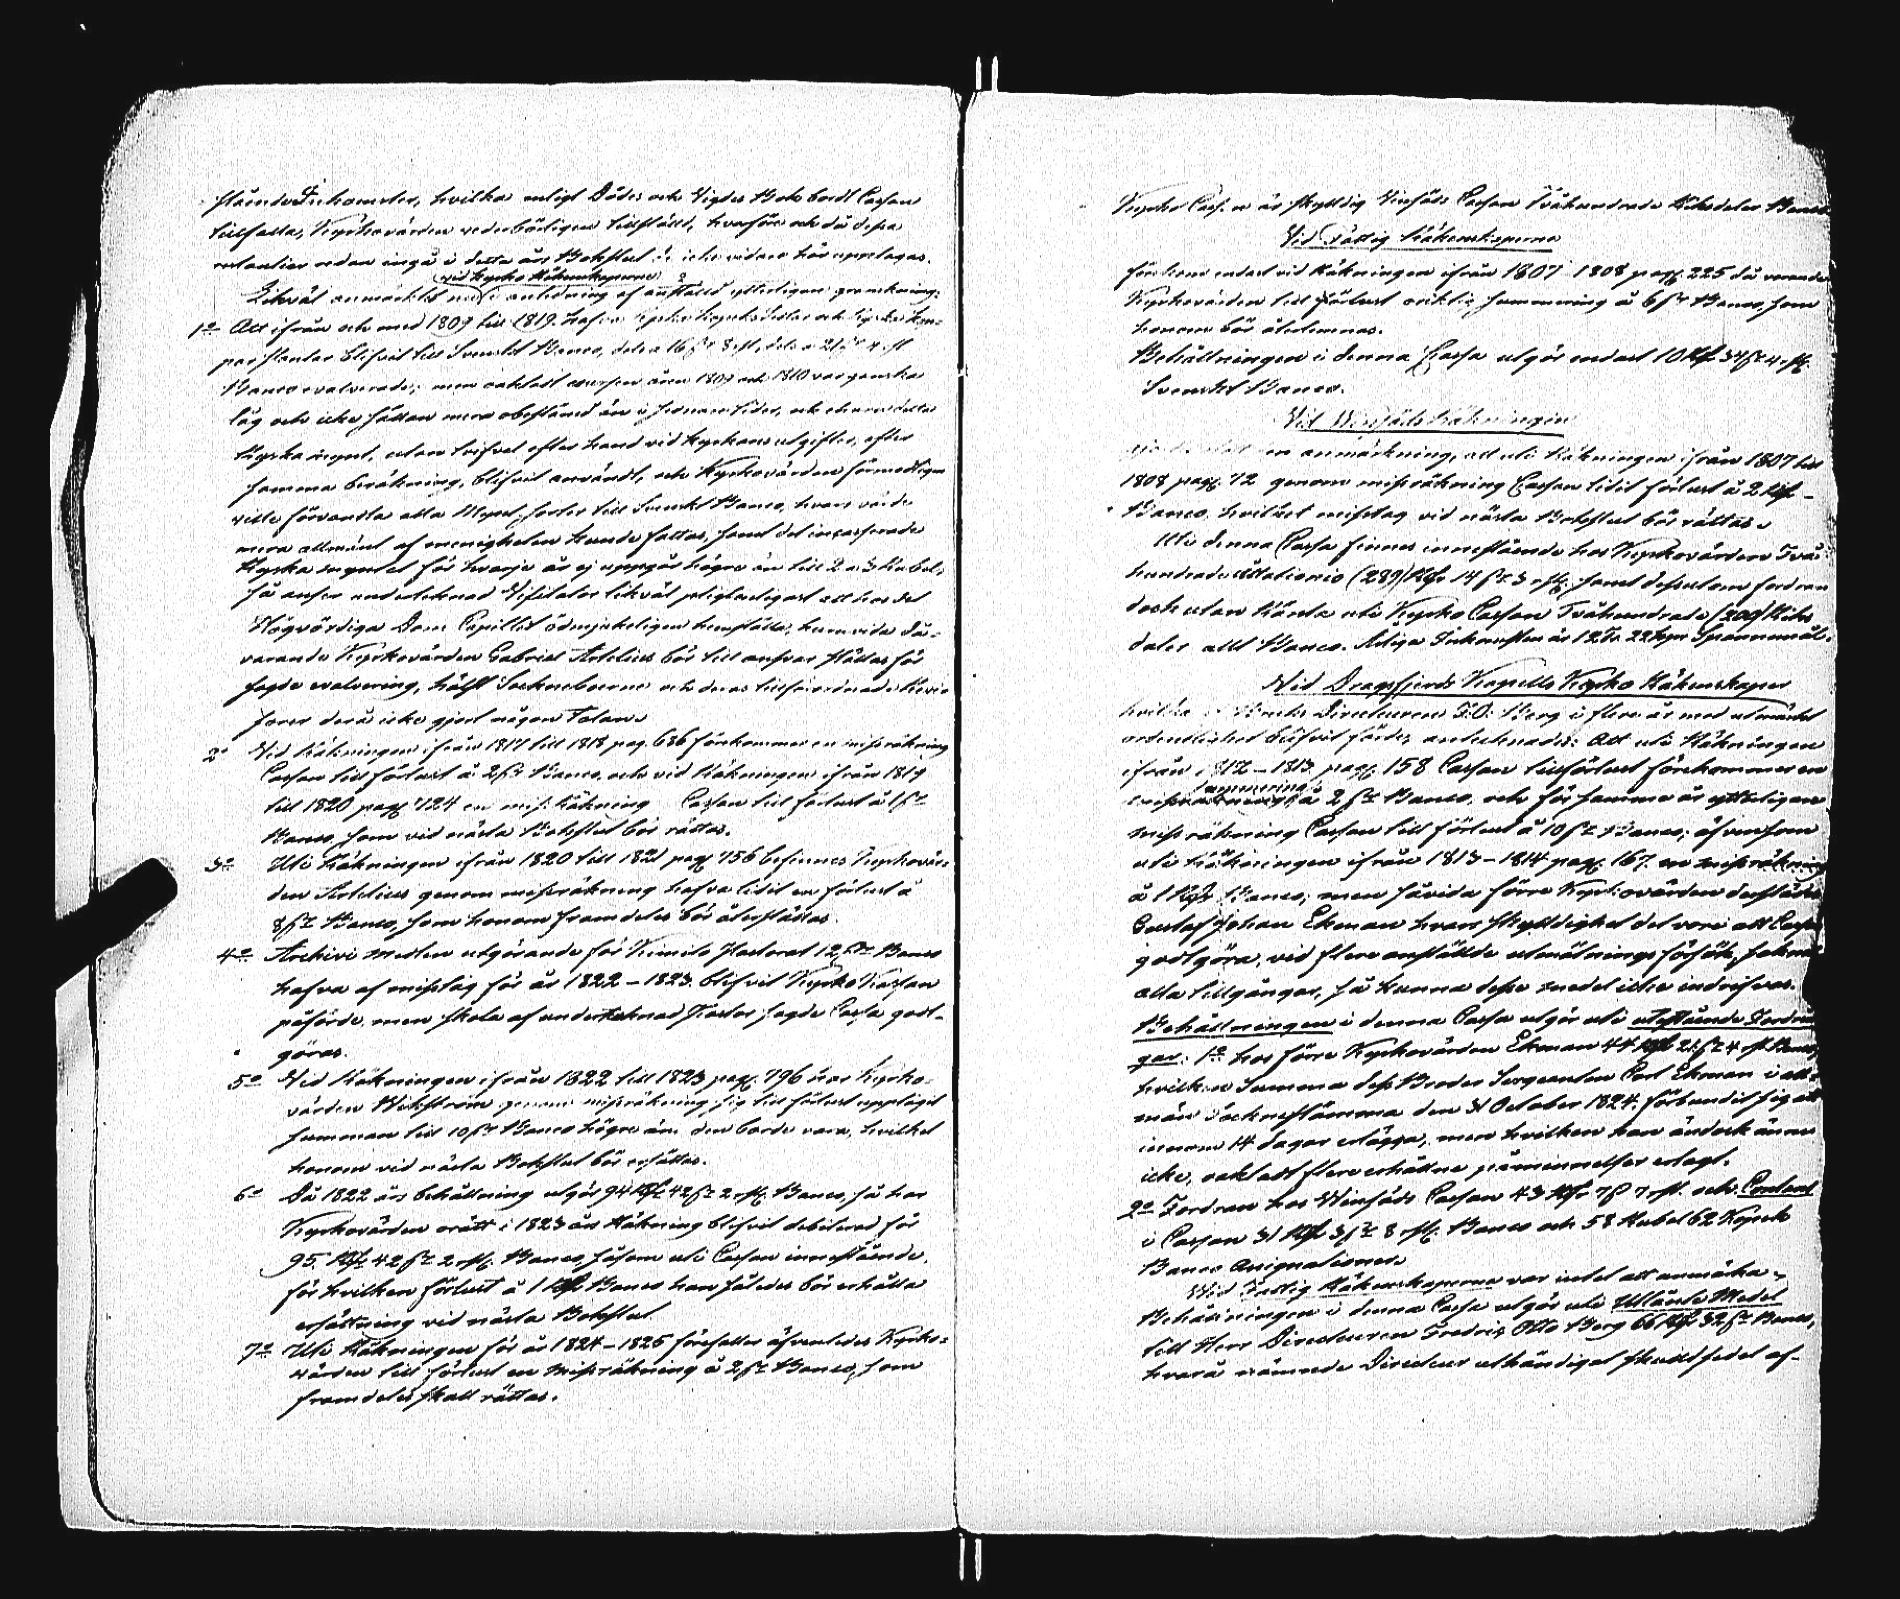 stående Inkomster, hvilka enligt Dödes och Vigdes Bok bordt Cassan
tillfalla, Kyrkovärden vederbörligen tillstäld, hvarföre och då dessa
restantier redan ingå i detta års Bokslut de icke vidare här upptagas.
Likväl anmärktes (vid Kyrko Räkenskaperne) i anledning af anstäld ytterligare granskning:
1o Att ifrån och med 1809 till 1819 hafva Ryska Kopek Sedlar och Ryska Kop-
par slantar blifvit till Svenskt Banco, dels a 16 ß 8 rst, dels a 21 ß 4 rst
Banco evalverade; men oaktadt coursen åren 1809 och 1810 var ganska
låg och icke sällan mera obestämd än i sednare tider, och ehuru detta
Ryska mynt, utan tvifvel efter hand vid Kyrkans utgifter, efter
samma beräkning, blifvit användt, och Kyrkovärden förmodligen
velat förvandla alla Mynt sorter till Svenskt Banco, hvars värde
mera allmänt af menigheten kunde fattas, samt det incasserade
Ryska myntet för hvarje år ej uppgår högre än till 2 a 3 Rubel,
så anser undertecknad Visitator likväl pligtenligast att hos det
Högvördiga Dom Capitlet ödmjukeligen hemställa, huruvida då-
varande Kyrkovärden Gabriel Artelius bör till ansvar ställas för
sagde evalvering, hälst Sockneboerne och deras tillförordnade Revi-
sorer derå icke gjort någon Talan.
2o Vid Räkningen ifrån 1817 till 1818 pag. 636 förekommer en missräkning
Cassan till förlust å 2 ß Banco, och vid Räkningen ifrån 1819
till 1820 pag. 724 en miss Räkning Cassan till förlust å 1 ß
Banco, som vid nästa Bokslut bör rättas.
3o Uti Räkningen ifrån 1820 till 1821 pag. 756 befinnes Kyrkovär-
den Artelius genom missräkning hafva lidit en förlust å
8 ß Banco, som honom framdeles bör återställas.
4o Archivi Medlen utgörande för Kimito Pastorat 12 ß Banco
hafva af misstag för år 1822 – 1823 blifvit Kyrko Kassan
påförde, men skola af undertecknad Pastor sagde Cassa godt-
göras.
5o Vid Räkningen ifrån 1822 till 1823 pag. 796 har Kyrko-
värden Wikström genom missräkning sig till förlust upptagit
summan till 10 ß Banco högre än den borde vara, hvilket
honom vid nästa Bokslut bör ersättas.
6o Då 1822 års behållning utgör 94 Rd 42 ß 2 rst. Banco, så har
Kyrkovärden orätt i 1823 års Räkning blifvit debiterad för
95 Rd 42 ß 2 rst. Banco, såsom uti Cassan innestående,
för hvilken förlust å 1 Rd Banco han således bör erhålla
ersättning vid nästa Bokslut.
7o Uti Räkningen för år 1824 – 1825 förefaller äfvenledes Kyrko-
värden till förlust en missräkning å 2 ß Banco, som
framdeles skall rättas.
Kyrko Cassan är skyldig Vinsäds Cassan Tvåhundrade Riksdaler Banco
Vid Fattig Räkenskaperne
förekom endast vid Räkningen ifrån 1807 1808 pag. 225 då varande
Kyrkovärden till förlust oriktig summering å 6 ß Banco, som
honom bör återlemnas.
Behållningen i denna Cassa utgör endast 10 Rd 34 ß 4 rst.
Svenskt Banco.
Vid Vinsäds Räkningen
en anmärkning, att uti Räkningen ifrån 1807 till
1808 pag. 72 genom missräkning Cassan lidit förlust å 2 Rd
Banco, hvilket misstag vid nästa Bokslut bör rättas.
Uti denna Cassa finnes innestående hos Kyrkovärden Två-
hundrade Åttationio (289) Rd 14 ß 3 rst. samt dessutom fordran
doch utan Ränta uti Kyrko Cassan Tvåhundrade (200) Riks
daler allt Banco. Årliga Inkomsten är 12 Tr 22 kpr Spannemål.
Vid Dragsfjerds Kapells Kyrko Räkenskaper
hvilka Directeuren F: O: Berg i flere år med utmärkt
ordentlighet blifvit förde, antecknades: Att uti Räkningen
ifrån 1812 – 1813 pag. 158 Cassan till förlust förekommer en
summering å 2 ß Banco, och för samma år ytterligare
missräkning Cassan till förlust å 10 ß Banco; äfvensom
uti Räkningen ifrån 1813 – 1814 pag. 167. en missräkning
å 1 Rd Banco; men såvida förre Kyrkovärden derstädes
Gustaf Johan Ekman hvars skyldighet det vore att Cassan
godtgöra, vid flere anstälde utmätnings försök, saknat
alla tillgångar, så kunna desse medel icke indrifvas.
Behållningen i denna Cassa utgör uti utestående Fordrin
gar: 1o hos förre Kyrkovärden Ekman 44 Rd 21 ß 4 rst Banco,
hvilken Summa dess Broder Sergeanten Carl Ekman i all-
män Socknestämma den 31 October 1824 förbundit sig att
innom 14 dagar erlägga, men hvilken han ändock ännu
icke, oaktadt flere erhållne påminnelser erlagt.
2o Fordran hos Vinsäds Cassan 43 Rd 7 ß 7 rst. och Contant
i Cassan 31 Rd 3 ß 8 rst. Banco och 58 Rubel 62 Kopek
Banco Assignationer.
Vid Fattig Räkenskaperne var intet att anmärka.
Behållningen i denna Cassa utgör uti Utlånte Medel
till Herr Directeuren Fredric Otto Berg 66 Rd 32 ß Banco,
hvarå nämnde Directeur uthändigat skuldsedel af-